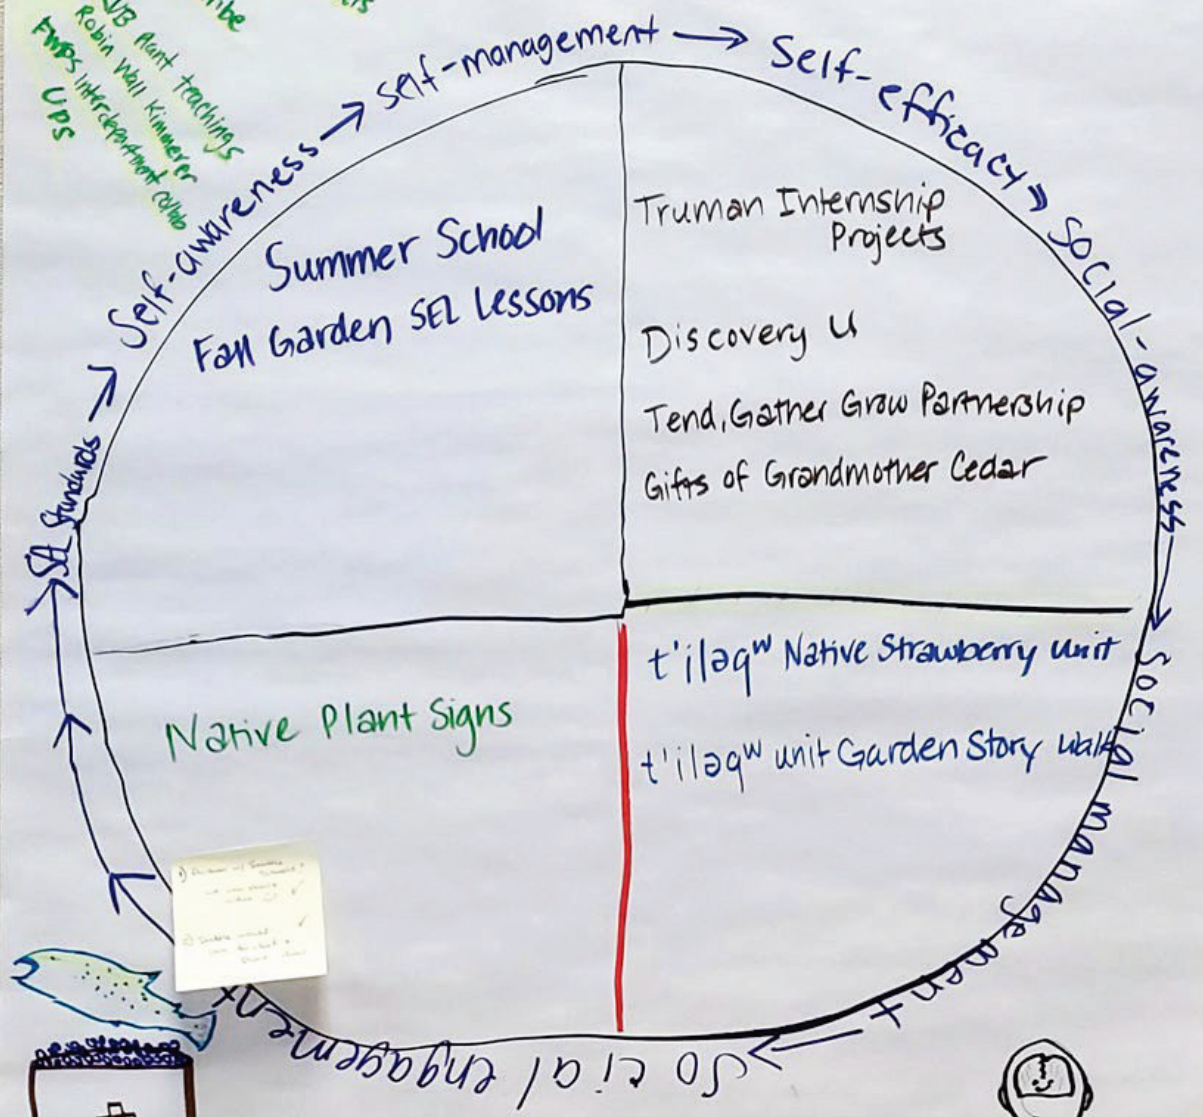 ribe
WB Plant teachings
Robin Wall Kimmerer
FWPS Interdepartment collab
UPS
SEL Standards → Self-awareness → self-management → Self-efficacy → Social-awareness → Social management → Social engagement
Summer School
Fall Garden SEL Lessons
Truman Internship
Projects
Discovery U
Tend, Gather Grow Partnership
Gifts of Grandmother Cedar
Native Plant Signs
t'iləqʷ Native Strawberry Unit
t'iləqʷ unit Garden Story Walk